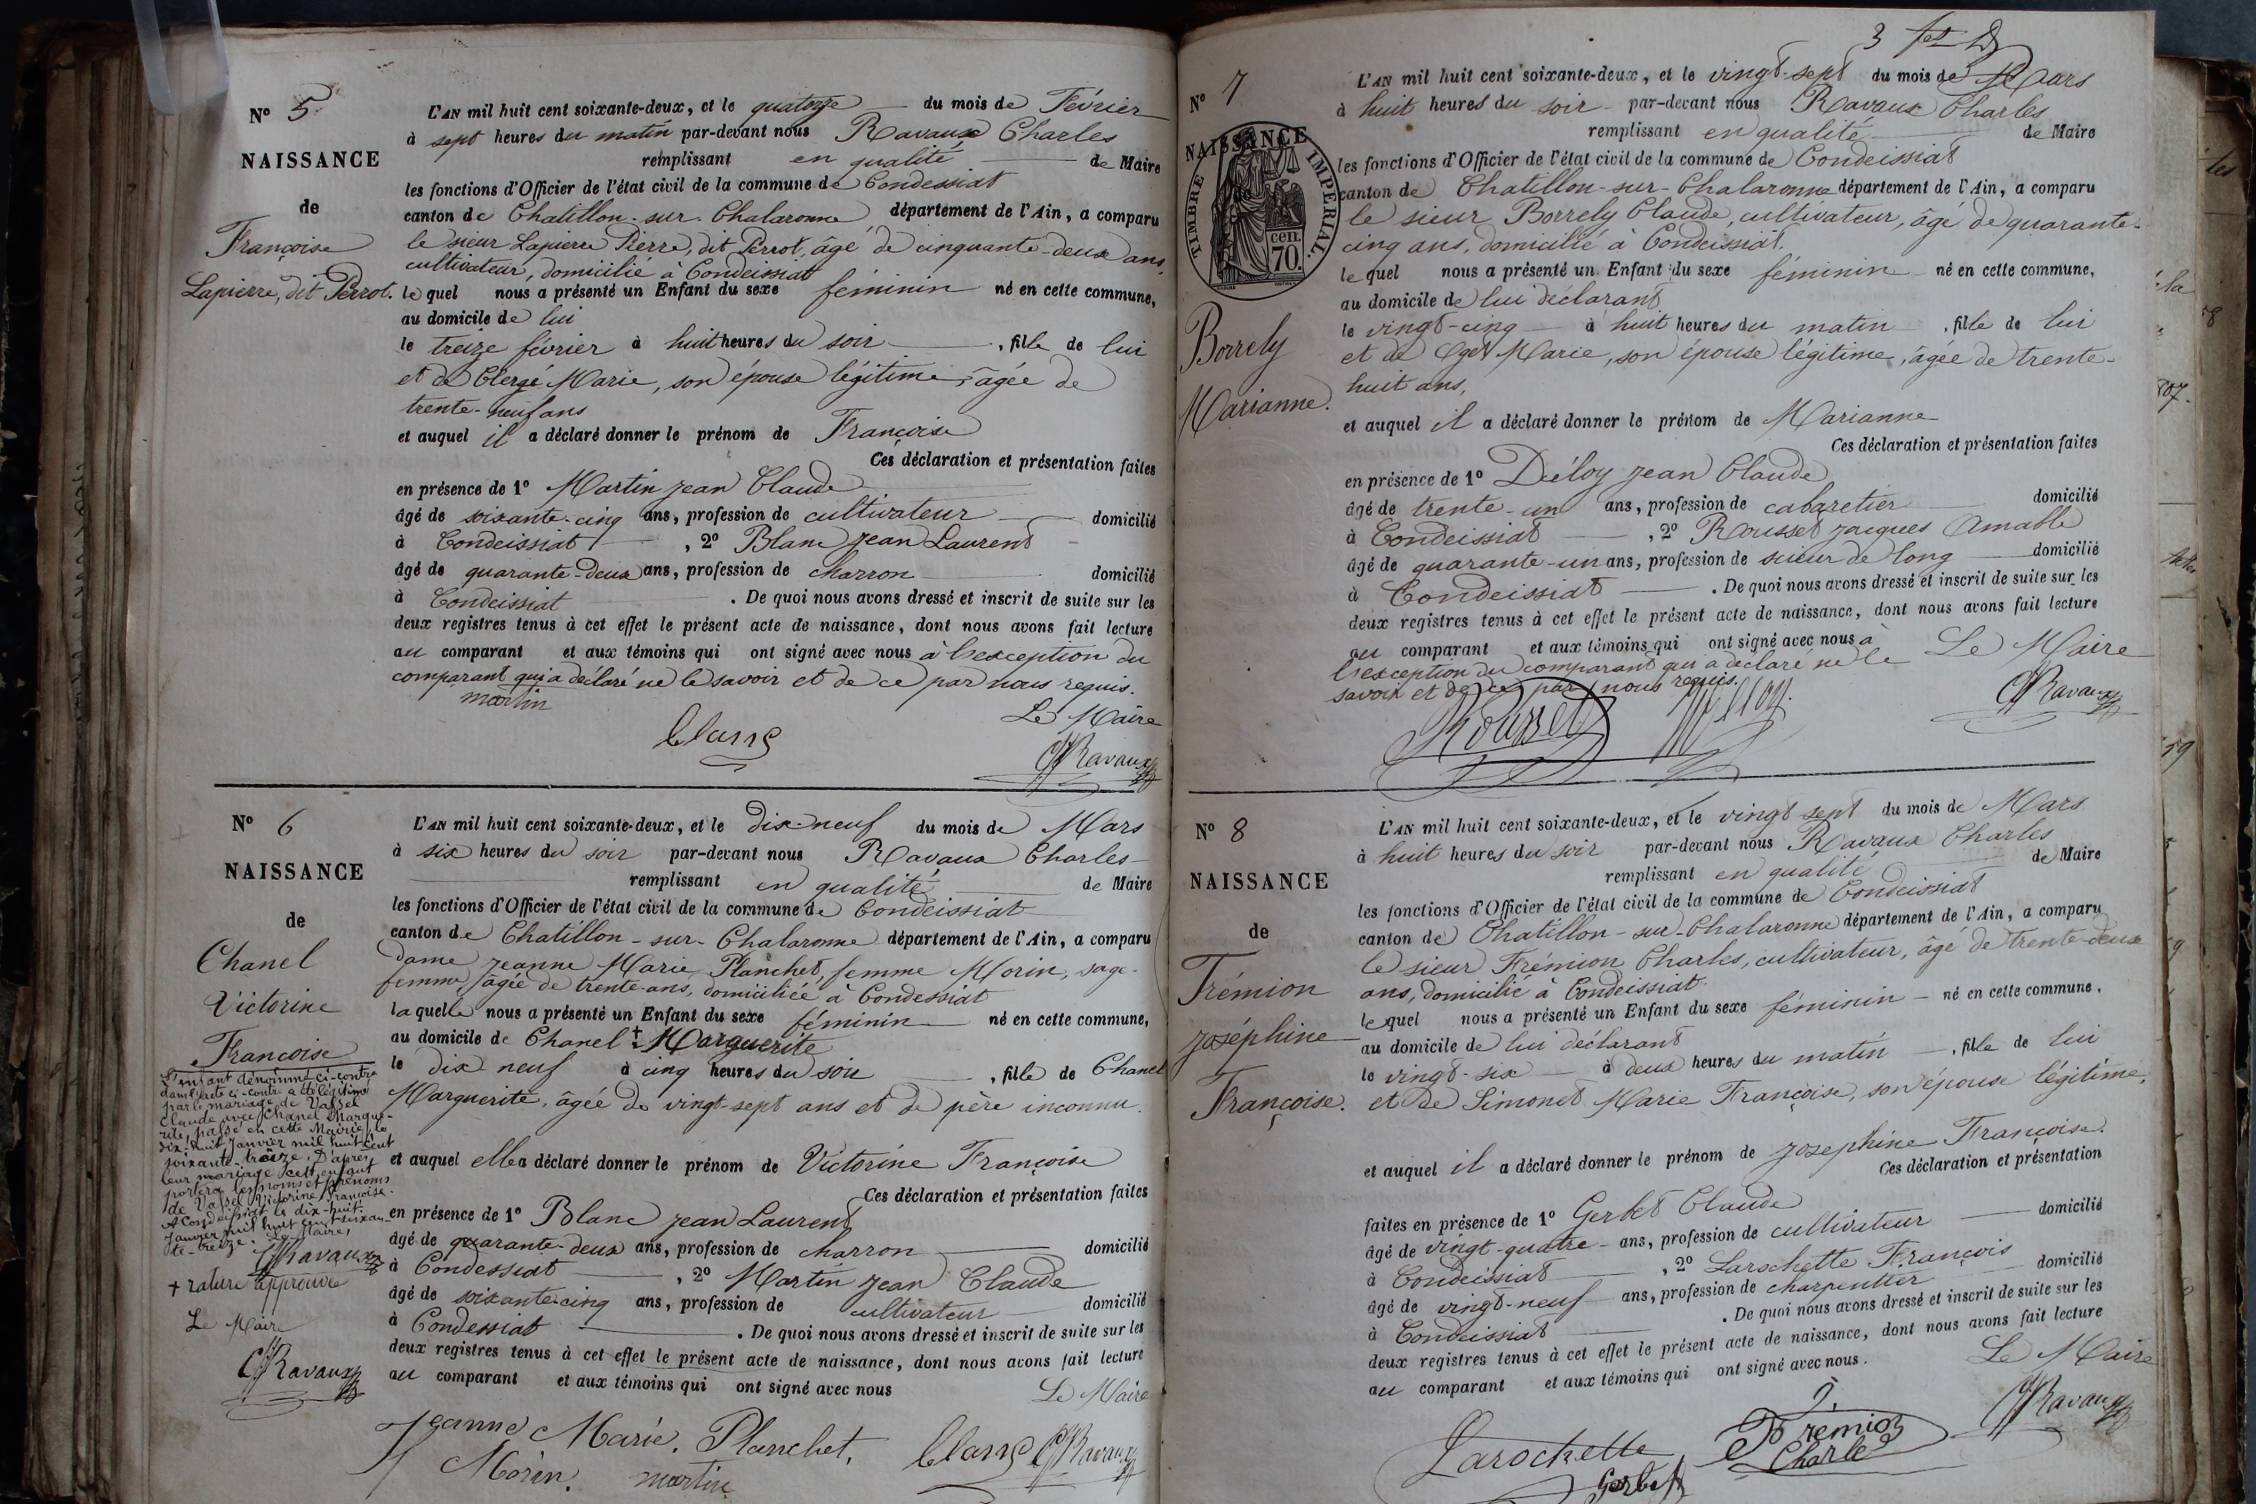 N° 5
NAISSANCE
de
Françoise
Lapierre, dit Perrot.
L'AN mil huit cent soixante-deux, et le quatorze du mois de Février
à sept heures du matin par-devant nous Ravaux Charles
remplissant en qualité de Maire
les fonctions d'Officier de l'état civil de la commune de Condessiat
canton de Chatillon-sur-Chalaronne département de l'Ain, a comparu
le sieur Lapierre Pierre, dit Perrot, âgé de cinquante-deux ans,
cultivateur, domicilié à Condeissiat
lequel nous a présenté un Enfant du sexe féminin né en cette commune,
au domicile de lui
le treize février à huit heures du soir, fille de lui
et de Clergé Marie, son épouse légitime, âgée de
trente-neuf ans
et auquel il a déclaré donner le prénom de Françoise
Ces déclaration et présentation faites
en présence de 1° Martin Jean Claude
âgé de soixante-cinq ans, profession de cultivateur domicilié
à Condeissiat, 2° Blanc Jean Laurent
âgé de quarante-deux ans, profession de charron domicilié
à Condeissiat. De quoi nous avons dressé et inscrit de suite sur les
deux registres tenus à cet effet le présent acte de naissance, dont nous avons fait lecture
au comparant et aux témoins qui ont signé avec nous à l'exception du
comparant qui a déclaré ne le savoir et de ce par nous requis.
martin
Le Maire
Blanc
C Ravaux
N° 6
NAISSANCE
de
Chanel
Victorine
Françoise
L'enfant dénommé ci-contre
dans l'acte ci-contre a été légitimé
par le mariage de Vassel
Claude avec Chanel Margue-
rite, passé en cette Mairie, le
dix-huit Janvier mil huit cent
soixante-treize. D'après
leur mariage cett enfant
portera les noms et prénoms
de Vassel Victorine Françoise.
A Condeissiat le dix-huit
Janvier mil huit cent soixan-
te-treize. Le Maire,
C Ravaux
+ rature approuvée
Le Maire
C Ravaux
L'AN mil huit cent soixante-deux, et le dix-neuf du mois de Mars
à six heures du soir par-devant nous Ravaux Charles
remplissant en qualité de Maire
les fonctions d'Officier de l'état civil de la commune de Condeissiat
canton de Chatillon-sur-Chalaronne département de l'Ain, a comparu
dame Jeanne Marie Planchet, femme Morin, sage-
femme, âgée de trente ans, domiciliée à Condessiat
laquelle nous a présenté un Enfant du sexe féminin né en cette commune,
au domicile de Chanel + Marguerite
le dix neuf à cinq heures du soir, fille de Chanel
Marguerite, âgée de vingt-sept ans et de père inconnu.
et auquel elle a déclaré donner le prénom de Victorine Françoise
Ces déclaration et présentation faites
en présence de 1° Blanc Jean Laurent
âgé de quarante-deux ans, profession de charron domicilié
à Condessiat, 2° Martin Jean Claude
âgé de soixante-cinq ans, profession de cultivateur domicilié
à Condessiat. De quoi nous avons dressé et inscrit de suite sur les
deux registres tenus à cet effet le présent acte de naissance, dont nous avons fait lecture
au comparant et aux témoins qui ont signé avec nous
Le Maire
Jeanne Marie. Planchet, Blanc C Ravaux
Morin. martin
3
N° 7
NAISSANCE
TIMBRE IMPERIAL.
cen. 70.
Borrely
Marianne.
L'AN mil huit cent soixante-deux, et le vingt-sept du mois de Mars
à huit heures du soir par-devant nous Ravaux Charles
remplissant en qualité de Maire
les fonctions d'Officier de l'état civil de la commune de Condeissiat
canton de Chatillon-sur-Chalaronne département de l'Ain, a comparu
le sieur Borrely Claude, cultivateur, âgé de quarante-
cinq ans, domicilié à Condeissiat,
lequel nous a présenté un Enfant du sexe féminin né en cette commune,
au domicile de lui déclarant
le vingt-cinq à huit heures du matin, fille de lui
et de Oger Marie, son épouse légitime, âgée de trente-
huit ans,
et auquel il a déclaré donner le prénom de Marianne
Ces déclaration et présentation faites
en présence de 1° Déloy Jean Claude
âgé de trente-un ans, profession de cabaretier domicilié
à Condeissiat, 2° Rousset Jacques Amable
âgé de quarante-un ans, profession de scieur de long domicilié
à Condeissiat. De quoi nous avons dressé et inscrit de suite sur les
deux registres tenus à cet effet le présent acte de naissance, dont nous avons fait lecture
au comparant et aux témoins qui ont signé avec nous à
l'exception du comparant qui a déclaré ne le
savoir et de ce par nous requis.
Le Maire
Rousset
C Ravaux
N° 8
NAISSANCE
de
Frémion
Joséphine
Françoise.
L'AN mil huit cent soixante-deux, et le vingt sept du mois de Mars
à huit heures du soir par-devant nous Ravaux Charles
remplissant en qualité de Maire
les fonctions d'Officier de l'état civil de la commune de Condeissiat
canton de Chatillon-sur-Chalaronne département de l'Ain, a comparu
le sieur Frémion Charles, cultivateur, âgé de trente-deux
ans, domicilié à Condeissiat.
lequel nous a présenté un Enfant du sexe féminin né en cette commune,
au domicile de lui déclarant
le vingt-six à deux heures du matin, fille de lui
et de Simonet Marie Françoise, son épouse légitime,
et auquel il a déclaré donner le prénom de Joséphine Françoise.
Ces déclaration et présentation
faites en présence de 1° Gerbet Claude
âgé de vingt-quatre ans, profession de cultivateur domicilié
à Condeissiat, 2° Larochette François
âgé de vingt-neuf ans, profession de charpentier domicilié
à Condeissiat. De quoi nous avons dressé et inscrit de suite sur les
deux registres tenus à cet effet le présent acte de naissance, dont nous avons fait lecture
au comparant et aux témoins qui ont signé avec nous.
Le Maire
Larochette
Frémion
Charle
C Ravaux
Gerbet